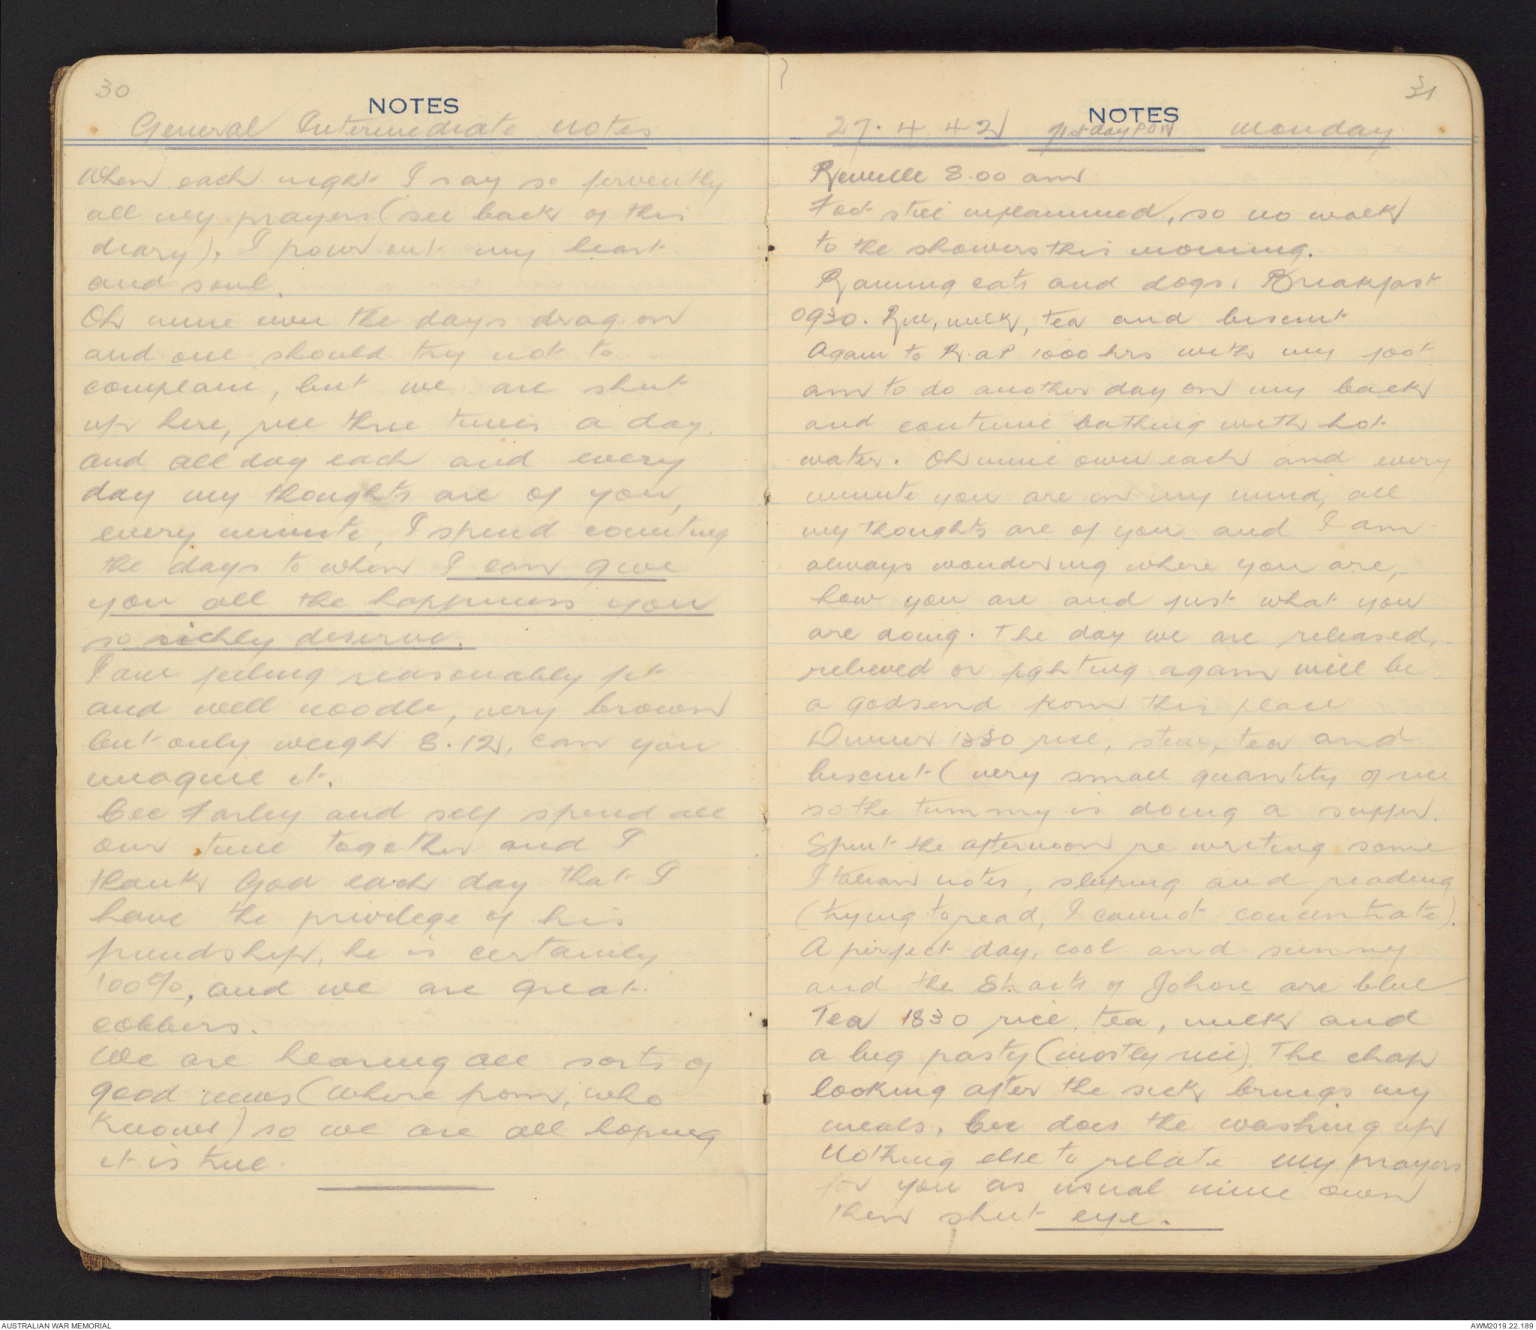 30
NOTES
General Intermediate notes
When each night I say so fervently
all my prayers (see back of this
diary). I pour out my heart
and soul.
Oh mine own the days drag on
and one should try not to
complain, but we are shut
up here, rice three times a day
and all day each and every
day my thoughts are of you,
every minute, I spend counting
the days to when I can give
you all the happiness you
so richly deserve.
I am feeling reasonably fit
and well noodle, very brown
but only weigh 8.12, can you
imagine it.
Cec Farley and self spend all
our time together and I
thank God each day that I
have the privilege of his
friendship, he is certainly
100%, and we are great
cobbers.
We are hearing all sorts of
good news (where from, who
knows) so we are all hoping
it is true.
31
NOTES
27.4.42 71st day POW Monday
Reveille 8.00 am
Foot still inflammed, so no walk
to the showers this morning.
Raining cats and dogs. Breakfast
0930. Rice, milk, tea and biscuit
Again to R.A.P 1000 hrs with my foot
am to do another day on my back
and continue bathing with hot
water. Oh mine own each and every
minute you are on my mind, all
my thoughts are of you and I am
always wondering where you are,
how you are and just what you
are doing. The day we are released,
relieved or fighting again will be
a godsend from this place
Dinner 1330 rice, stew, tea and
biscuit (very small quantity of rice
so the tummy is doing a suffer.
Spent the afternoon re writing some
Italian notes, sleeping and reading
(trying to read, I cannot concentrate).
A perfect day, cool and sunny
and the Straits of Johore are blue
Tea 1830 rice, tea, milk and
a big pasty (mostly rice). The chap
looking after the sick brings my
meals, Cec does the washing up
Nothing else to relate my prayers
for you as usual mine own
then shut eye.
AUSTRALIAN WAR MEMORIAL
AWM2019.22.189